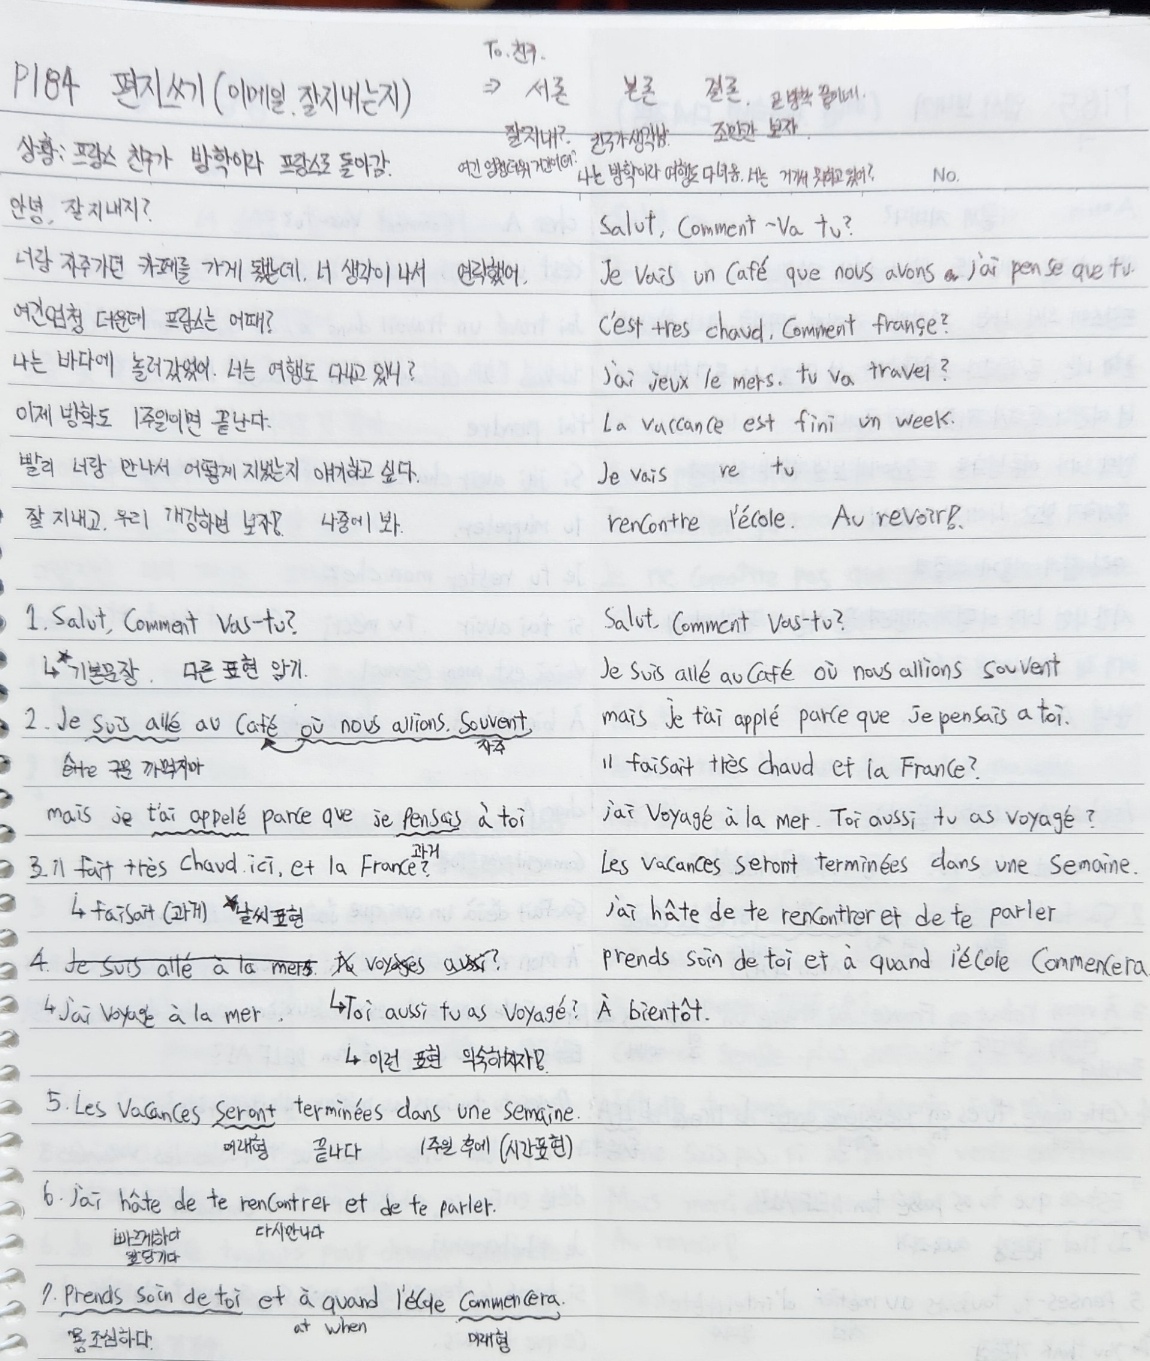 To. 친구.
P184 편지쓰기 (이메일, 잘지내는지) ⇒ 서론 본론 결론. 곧 방학 끝이네.
잘지내? 친구가 생각남. 조만간 보자.
상황: 프랑스 친구가 방학이라 프랑스로 돌아감. 여긴 엄청더워 거긴어때? 나는 방학이라 여행도 다녀옴. 너는 거기서 뭐하고있어? No.
안녕, 잘지내지? Salut, Comment ~Va tu?
너랑 자주가던 카페를 가게 됐는데, 너 생각이 나서 연락했어. Je vais un Café que nous avons j'ai pense que tu.
여긴엄청 더운데 프랑스는 어때? c'est tres chaud, Comment françe?
나는 바다에 놀러갔었어. 너는 여행도 다니고 있니? j'ai jeux le mers. tu va travel?
이제 방학도 1주일이면 끝난다. La vaccance est fini un week.
빨리 너랑 만나서 어떻게 지냈는지 얘기하고 싶다. Je vais re tu
잘 지내고, 우리 개강하면 보자! 나중에 봐. rencontre l'école. Au revoir!.
1. Salut, Comment Vas-tu? Salut, Comment Vas-tu?
↳ *기본문장. 다른 표현 암기. Je suis allé au Café où nous allions souvent
2. Je suis allé au Café où nous allions. Souvent, mais je t'ai applé parce que je pensais a toi.
자주
être 구문 까먹지마 Il faisait très chaud et la France?
mais je t'ai appelé parce que je pensais à toi j'ai Voyagé à la mer. Toi aussi tu as voyagé?
과거
3. Il fait très chaud ici, et la France? Les vacances seront terminées dans une semaine.
↳ faisait (과거) *날씨표현 j'ai hâte de te rencontrer et de te parler
4. Je suis allé à la mers. tu voyages aussi? prends soin de toi et à quand l'école Commencera
↳ J'ai Voyagé à la mer. ↳Toi aussi tu as Voyagé? À bientôt.
↳ 이런 표현 익숙해지자!
5. Les Vacances Seront terminées dans une Semaine.
미래형 끝나다 1주일 후에 (시간표현)
6. J'ai hâte de te renContrer et de te parler.
빠르게하다 다시만나다
앞당기다
7. Prends soin de toi et à quand l'école Commencera.
몸 조심하다. at when 미래형